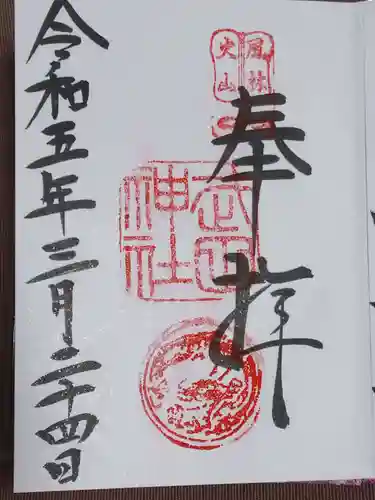 奉拝
風林
火山
武田
神社
令和五年三月二十四日